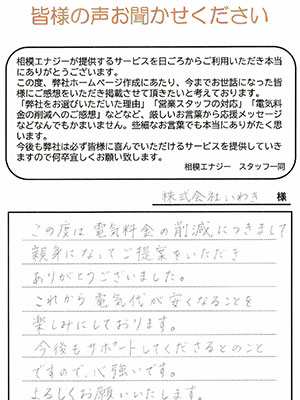 皆様の声お聞かせください
相模エナジーが提供するサービスを日ごろからご利用いただき本当
にありがとうございます。
この度、弊社ホームページ作成にあたり、今までお世話になった皆
様にご感想をいただき掲載させて頂きたいと考えております。
「弊社をお選びいただいた理由」「営業スタッフの対応」「電気料
金の削減へのご感想」などなど、厳しいお言葉から応援メッセージ
などなんでもかまいません。些細なお言葉でも本当にありがたく思
います。
今後も弊社は必ず皆様に喜んでいただけるサービスを提供していき
ますので何卒宜しくお願い致します。
相模エナジー スタッフ一同
株式会社いわき 様
この度は電気料金の削減につきまして
親身になってご提案をいただき
ありがとうございました。
これから電気代が安くなることを
楽しみにしております。
今後もサポートしてくださるとのこと
ですので、心強いです。
よろしくお願いいたします。